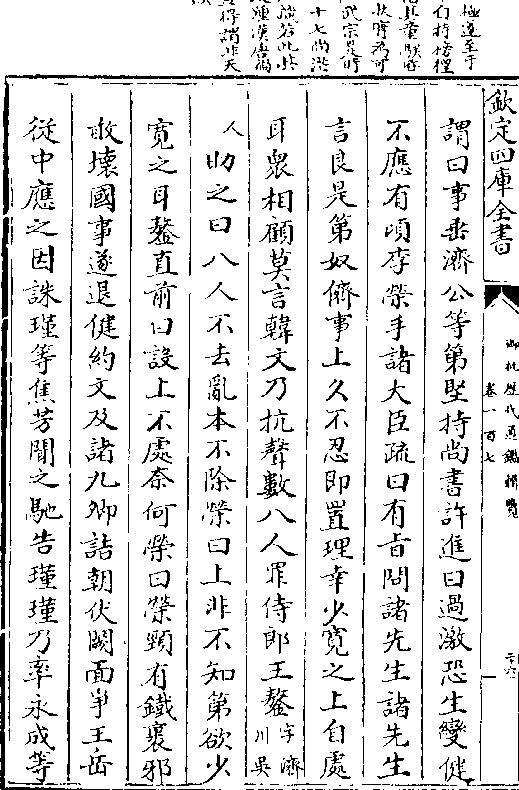 武宗是時
欽定四庫全書
御批歷代通鑑輯覽
卷一百七
謂曰事垂濟公等第堅持尚書許進曰過激恐生變健
不應有頃李榮手諸大臣疏曰有旨問諸先生諸先生
言良是第奴儕事上久不忍即置理幸少寬之上自處
耳眾相顧莫言韓文乃抗聲數八人罪侍郎王鏊字濟川吳
人助之曰八人不去亂本不除榮曰上非不知第欲少
寬之耳鏊直前曰設上不處奈何榮曰榮頸有鐵裹邪
敢壞國事遂退健約文及諸九卿詰朝伏闕面爭王岳
從中應之因誅瑾等焦芳聞之馳告瑾瑾乃率永成等